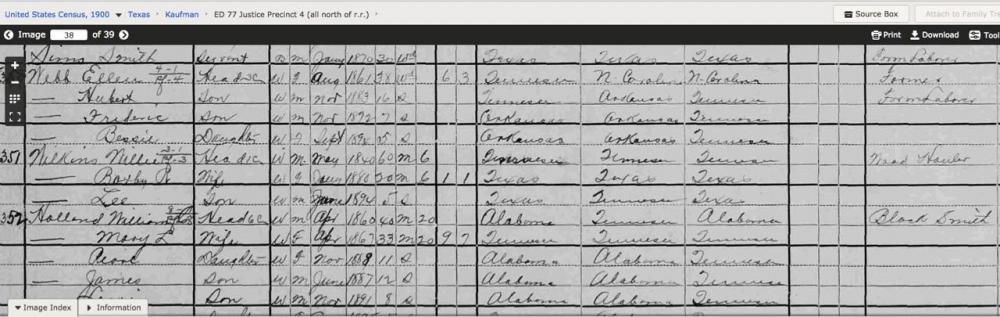 United States Census, 1900 Texas Kaufman ED 77 Justice Precinct 4 (all north of r.r.) Source Box Attach to Family Tre
Image 38 of 39 Print Download Tool
Sims Smith Servant m Texas Texas Texas Farm Labor
Webb Ellen Head w F Aug 1861 38 wd 6 3 Tennessee N. Carolina N. Carolina Farmer
— Hubert Son w m Nov 1883 16 S Tennessee Arkansas Tennessee Farm Laborer
— Frederic Son w m Nov 1892 7 S Arkansas Arkansas Tennessee
— Bessie Daughter w F Sept 1894 5 S Arkansas Arkansas Tennessee
351 Wilkins Head w m May 1840 60 m 6 Tennessee Tennessee Tennessee Wood Hauler
— Wife w F 1880 20 m 6 1 1 Texas Texas Texas
— Lee Son w m June 1894 5 S Texas Texas Texas
352 Holland William Head w m Apr 1860 40 m 20 Alabama Tennessee Alabama Black Smith
— Mary L Wife w F Apr 1867 33 m 20 9 7 Tennessee Tennessee Tennessee
— Daughter w F Nov 1888 11 S Alabama Alabama Tennessee
— James Son w m June 1887 12 S Alabama Alabama Tennessee
Son w m Nov 1891 8 S Alabama Alabama Tennessee
Image Index Information